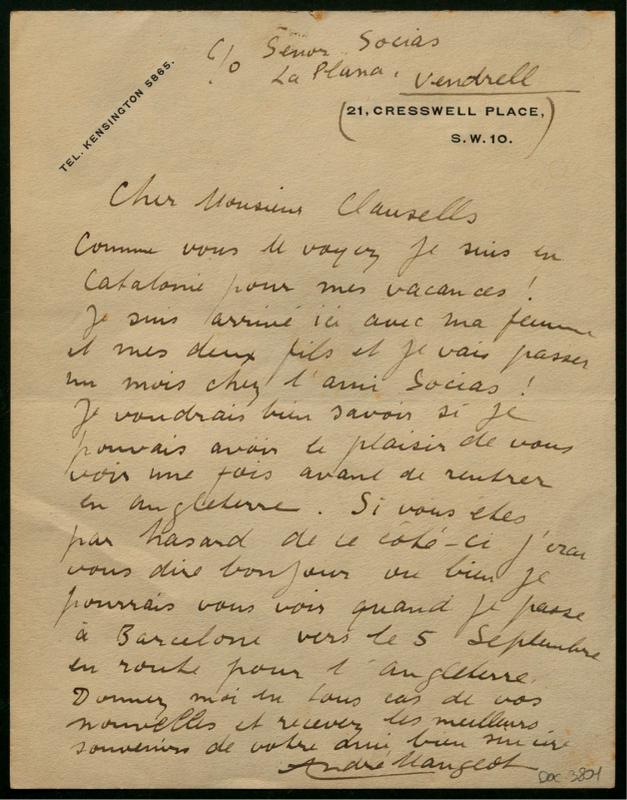 c/o Señor Socias
La Plana. Vendrell
TEL. KENSINGTON 5865.
(21, CRESSWELL PLACE,
S.W.10.)
Cher Monsieur Clausells
Comme vous le voyez je suis en
Catalonie pour mes vacances !
Je suis arrivé ici avec ma femme
et mes deux fils et je vais passer
un mois chez l'ami Socias !
Je voudrais bien savoir si je
pouvais avoir le plaisir de vous
voir une fois avant de rentrer
en angleterre. Si vous êtes
par hasard de ce côté-ci j'irai
vous dire bonjour ou bien je
pourrais vous voir quand je passe
à Barcelone vers le 5 Septembre
en route pour l'angleterre.
Donnez moi en tous cas de vos
nouvelles et recevez les meilleurs
souvenirs de votre ami bien sincère
André Mangeot
DOC-3801